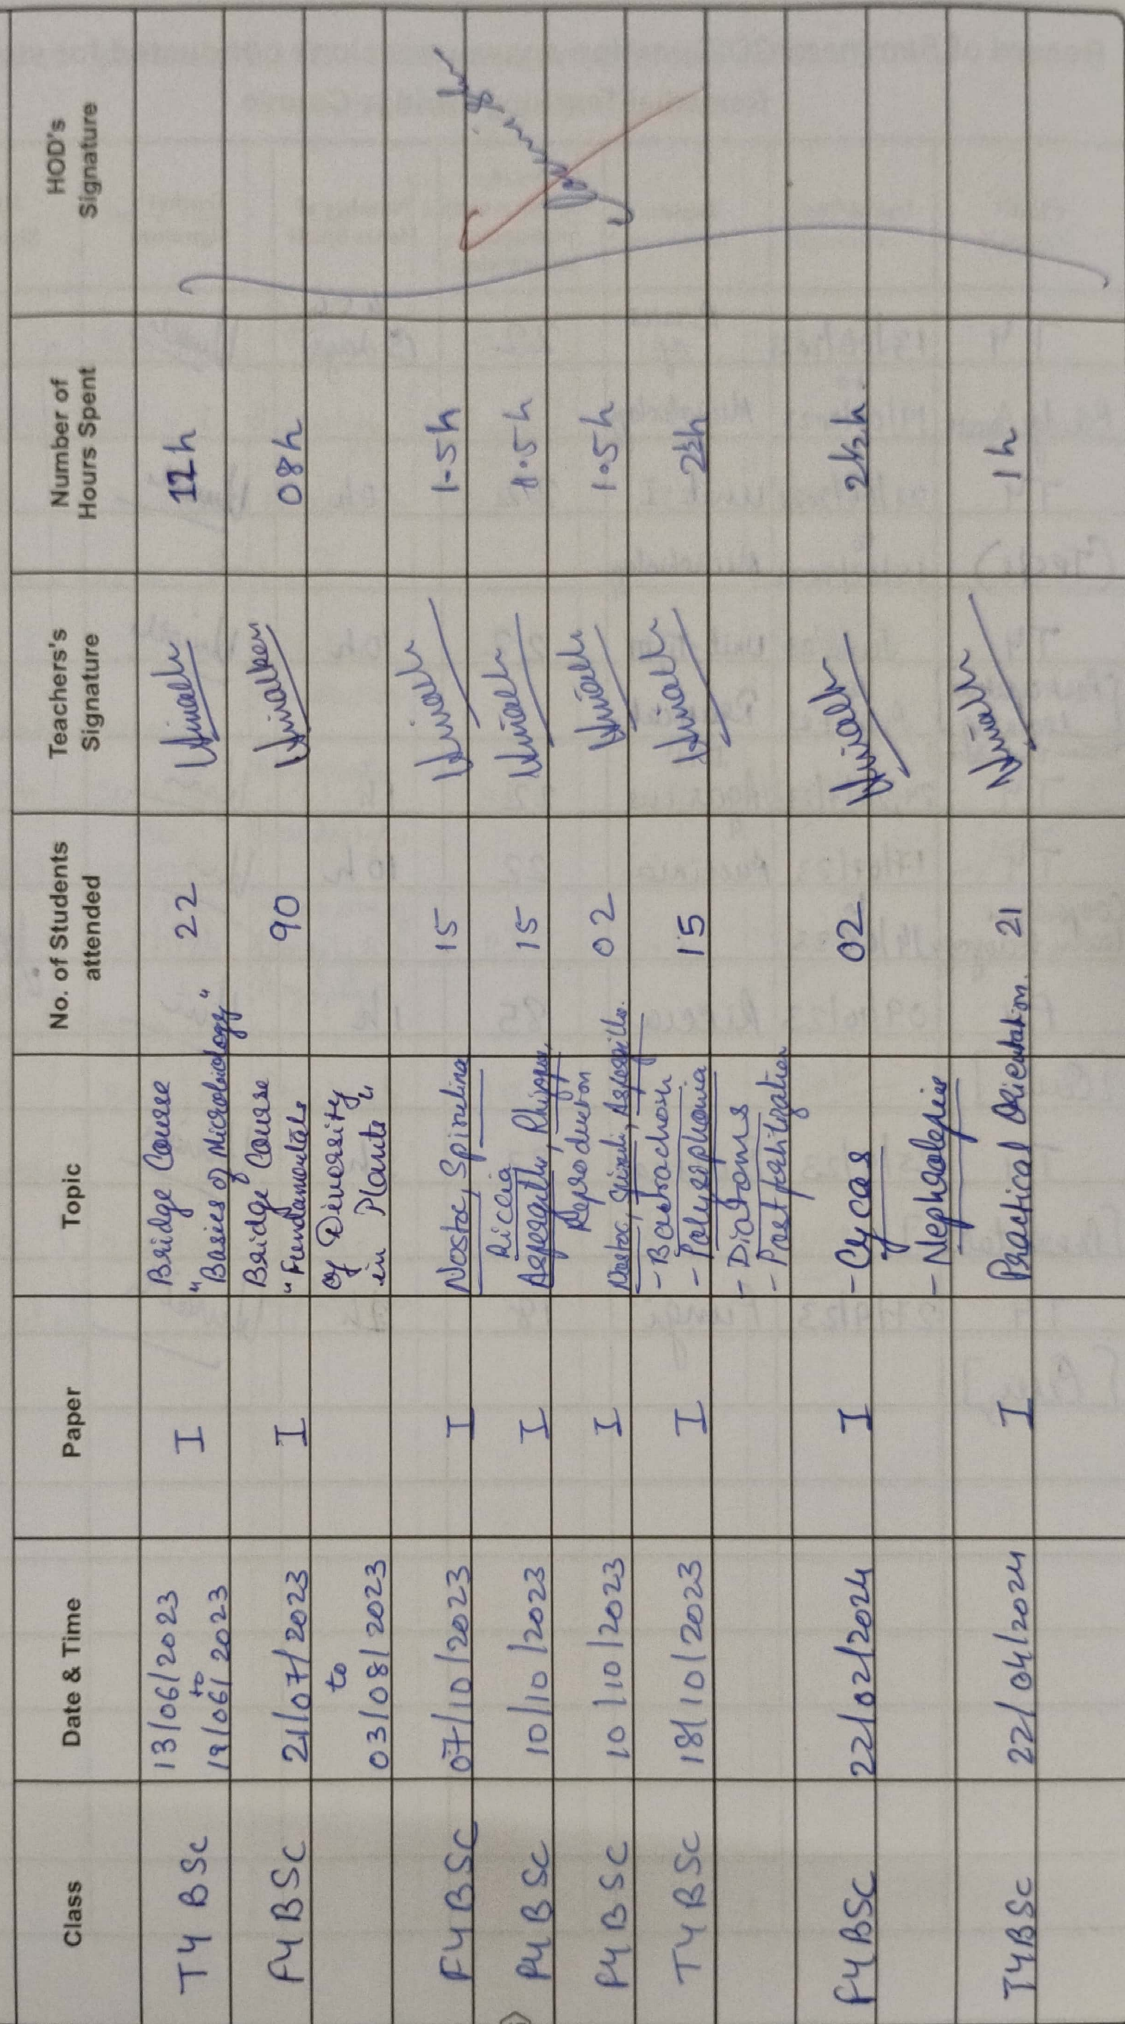 Class Date & Time Paper Topic No. of Students attended Teachers's Signature Number of Hours Spent HOD's Signature
TY BSc 13/06/2023 to 19/06/2023 I Bridge Course "Basics of Microbiology" 22 12h
FY BSc 21/07/2023 to 03/08/2023 I Bridge Course "Fundamentals of Diversity in Plants" 90 08h
FYBSC 07/10/2023 I Nostoc, Spirulina 15 1.5h
FY BSC 10/10/2023 I Riccia 15 1.5h
Reproduction
FY BSC 10/10/2023 I 02 1.5h
TY BSc 18/10/2023 I - Polysiphonia 15 2½h
- Diatoms
- Postfertilization
FYBSC 22/02/2024 I - Cycas 02 2½h
- Nephrolepis
TYBSc 22/04/2024 I Practical Orientation. 21 1h